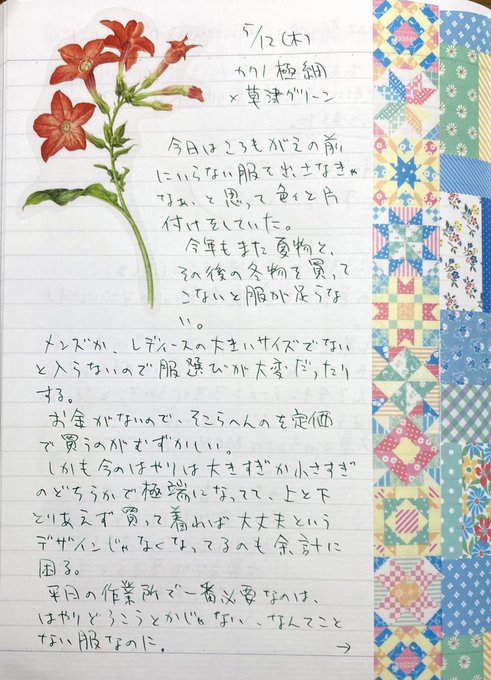 5/12(木)
カクノ極細
×草津グリーン
今日はころもがえの前
にいらない服を出さなきゃ
なぁ、と思って色々と片
付けをしていた。
今年もまた夏物と、
その後の冬物を買って
こないと服が足らな
い。
メンズか、レディースの大きいサイズでない
と入らないので服選びが大変だったり
する。
お金がないので、そこらへんのを定価
で買うのがむずかしい。
しかも今のはやりは大きすぎか小さすぎ
のどちらかで極端になってて、上と下
とりあえず買って着れば大丈夫という
デザインじゃなくなってるのも余計に
困る。
平日の作業所で一番必要なのは、
はやりどうこうとかじゃない、なんてこと
ない服なのに。
→